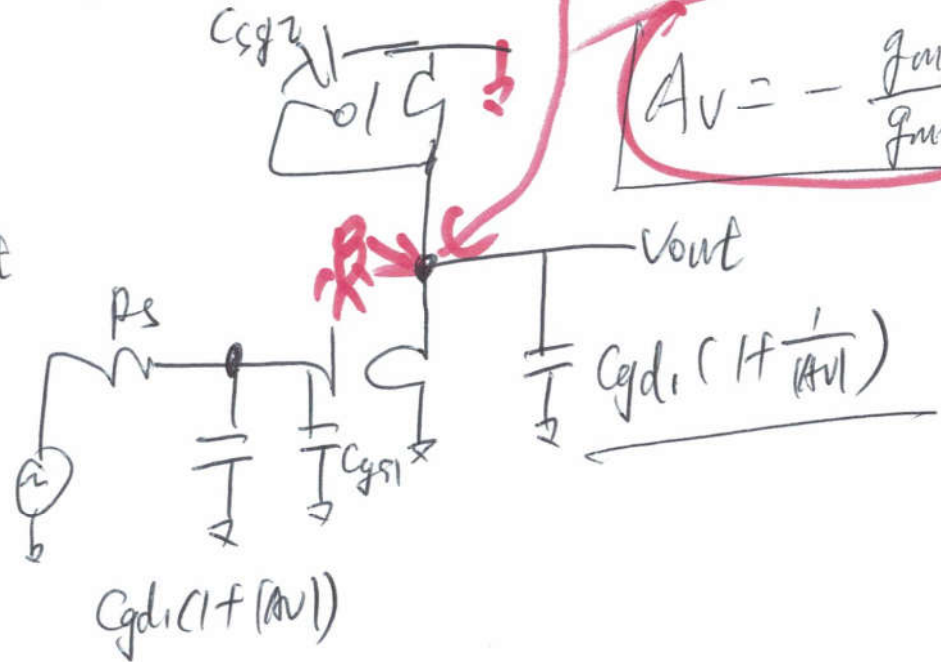 Csg2
Av = - gm
gm
Vout
Rs
Cgd1 (1+ 1/|Av|)
Cgs1
Cgd1(1+|Av|)